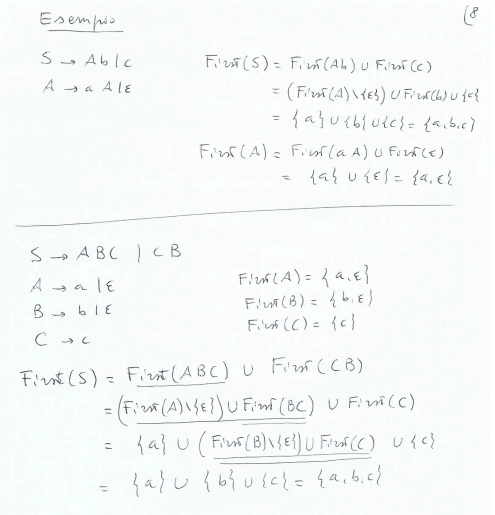 Esempio
(8
S → Ab | c
First(S) = First(Ab) ∪ First(c)
A → a A | ε
= (First(A) \ {ε}) ∪ First(b) ∪ {c}
= {a} ∪ {b} ∪ {c} = {a, b, c}
First(A) = First(a A) ∪ First(ε)
= {a} ∪ {ε} = {a, ε}
S → A B C | C B
A → a | ε
First(A) = {a, ε}
B → b | ε
First(B) = {b, ε}
C → c
First(C) = {c}
First(S) = First(ABC) ∪ First(CB)
= (First(A) \ {ε}) ∪ First(BC) ∪ First(C)
= {a} ∪ (First(B) \ {ε}) ∪ First(C) ∪ {c}
= {a} ∪ {b} ∪ {c} = {a, b, c}